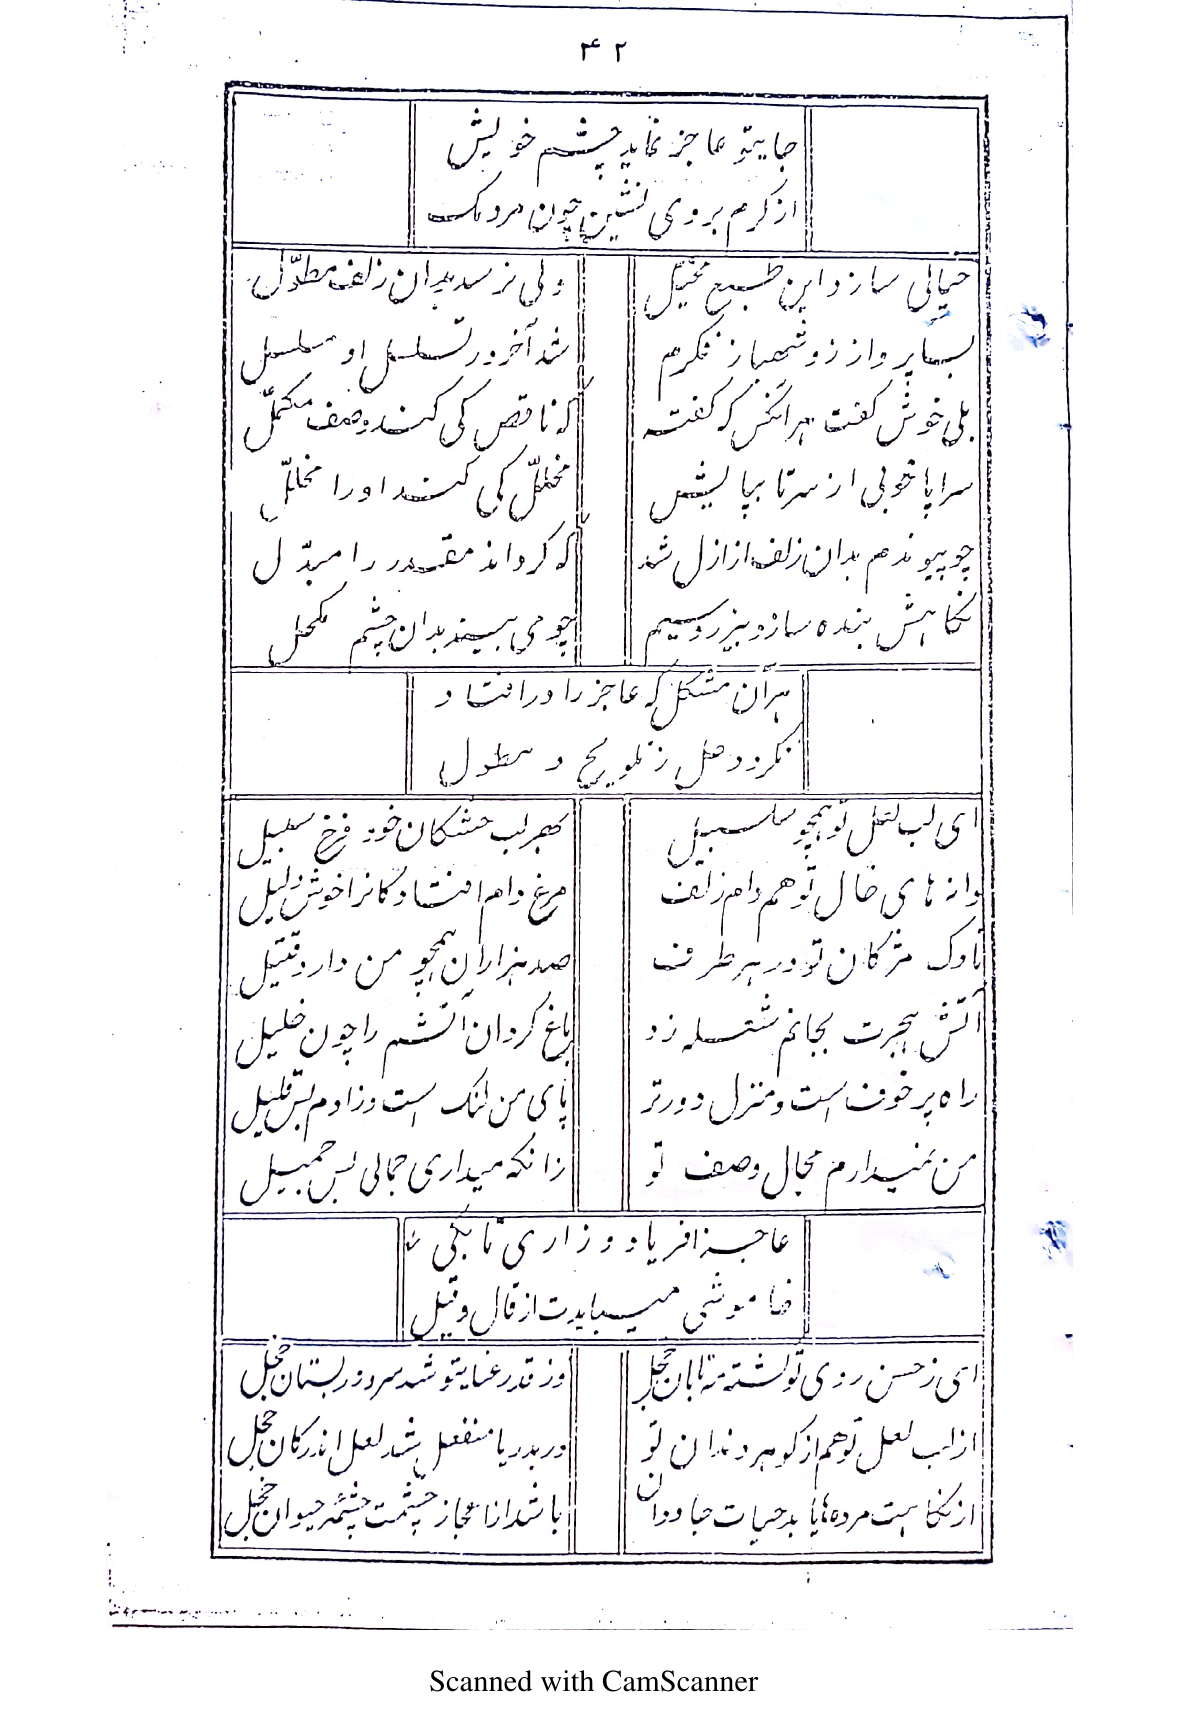 ۴۲
جا بیتو عاجز نماید چشم خویش
از کرم بروی نشین چون مردمک
خیالی سازد این طبع مخیل
ولی نرسد بدان زلف مطوّل
بسا پرواز زد شهباز فکرم
شد آخر در تسلسل او مسلسل
بلی خوش گفت هر آنکس که گفته
که ناقص کی کند وصف مکمّل
سراپا خوبی از سر تا بپایش
مخلّل کی کند او را مخلّل
چو پیوندم بدان زلف از ازل شد
که گرداند مقدر را مبدّل
نگاهش بنده سازد بیزر و سیم
چو می بیند بدان چشم مکحل
هر آن مشکل که عاجز را در افتاد
نکردد حل ز تلویح و مطول
ای لب لعل تو همچو سلسبیل
بهر لب خشکان خود فرخ سبیل
دانه های خال تو هم دام زلف
مرغ دام افتادگانرا خوش دلیل
ناوک مژگان تو در هر طرف
صد هزاران همچو من دارد قتیل
آتش هجرت بجانم شعله زد
باغ گردان آتشم را چون خلیل
راه پر خوف است و منزل دورتر
پای من لنگ است و زادم بس قلیل
من نمیدارم مجال وصف تو
زانکه میداری جمالی بس جمیل
عاجزا فریاد و زاری تا بکی
خاموشی میبایدت از قال و قیل
ای ز حسن روی تو گشته مه تابان خجل
وز قد رعنایتو شد سرو در بستان خجل
از لب لعل تو هم از گوهر دندان تو
در بدریا منفعل شد لعل اندر کان خجل
از نگاهت مرده ها یابد حیات جاودان
باشد از اعجاز چشمت چشمه حیوان خجل
Scanned with CamScanner